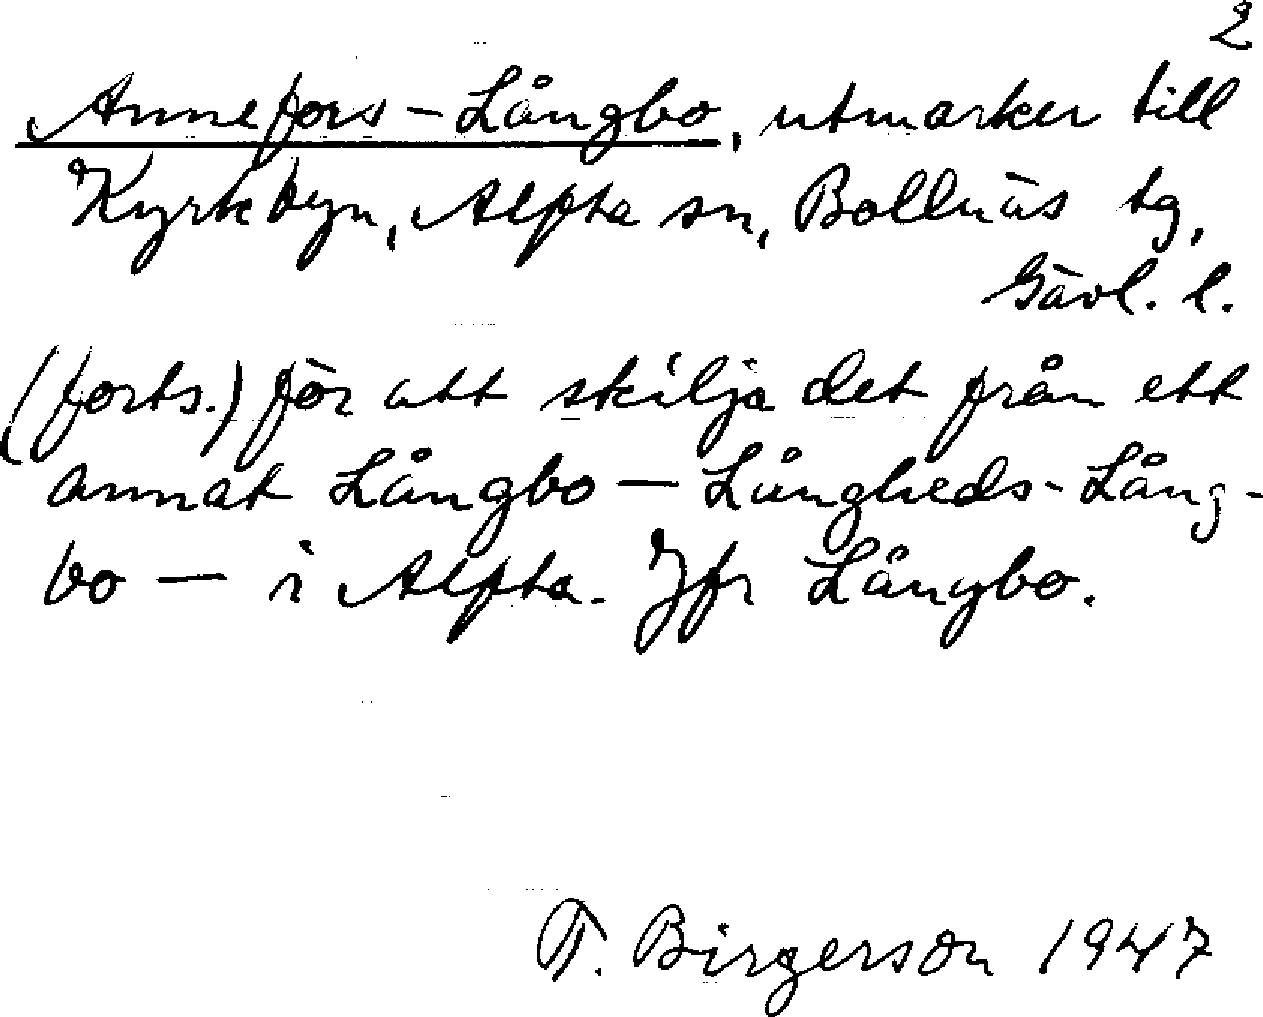 2
Annefors-Långbo, utmarker till
Kyrkbyn, Alfta sn, Bollnäs tg,
Gävl. l.
(forts.) för att skilja det från ett
annat Långbo — Långheds-Lång-
bo — i Alfta. Jfr Långbo.
T. Birgerson 1947